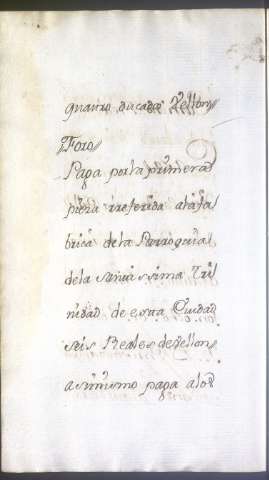 quatro ducados Vellon,
Foro
Paga por la primera
pieza rreferida a la fa
brica de la Parroquia
de la santissima Tri
nidad de esta Ciudad
seis Reales de Vellon
asimismo paga a los